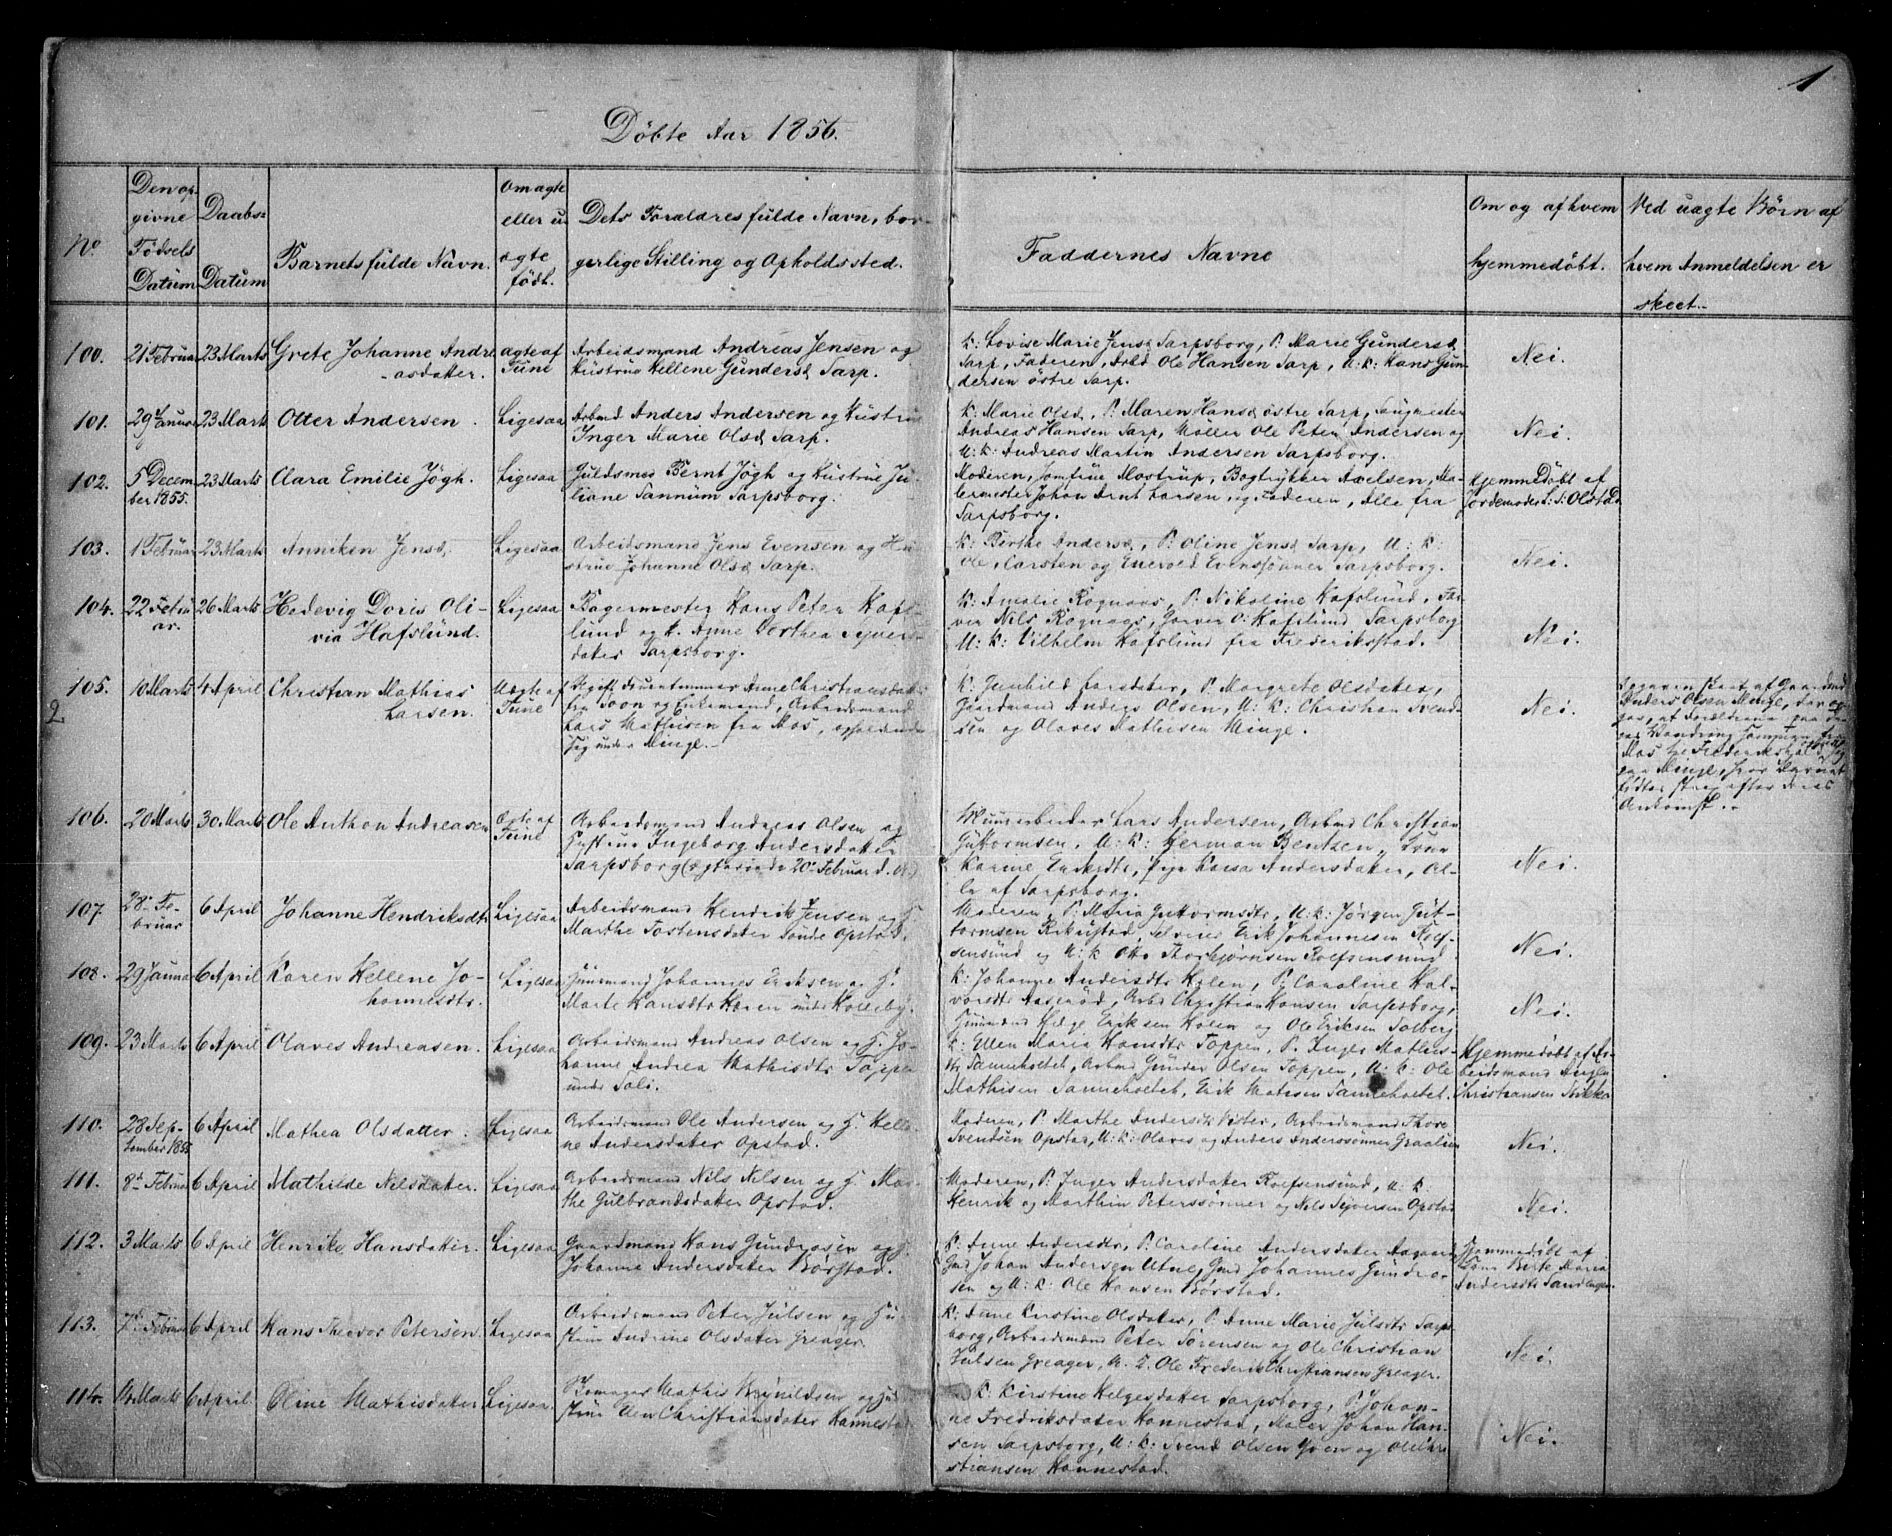 1
Döbte Aar 1856.
No
Den op-
givne
Födsels
Datum
Daabs-
Datum
Barnets fulde Navn.
Om ægte
eller u-
ægte
födt.
Dets Forældres fulde Navn, bor-
gerlige Stilling og Opholdssted.
Faddernes Navne
Om og af hvem
hjemmedöbt.
Ved uægte Börn af
hvem Anmeldelsen er
skeet.
100.
21 Februar
23 Marts
Grete Johanne Andre
asdatter.
ægte af
Tune
Arbeidsmand Andreas Jensen og
Hustrue Hellene Gundersd Sarp.
K: Lovise Marie Jensd Sarpsborg, P. Marie Gundersd
Sarp, Faderen, Arbd Ole Hansen Sarp, U: K: Hans Gun-
dersen östre Sarp.
Nei.
101.
29 Januar
23 Marts
Otter Andersen
Ligesaa
Arbmd Anders Andersen og Hustrue
Inger Marie Olsd Sarp.
K: Marie Olsd, P: Maren Hansd östre Sarp, Saugmester
Andreas Hansen Sarp, Möller Ole Peter Andersen og
U: K: Andreas Martin Andersen Sarpsborg.
Nei.
102.
5 Decem
ber 1855.
23 Marts
Clara Emilie Jögh.
Ligesaa
Guldsmed Bernt Jögh og Hustrue Ju-
liane Tannum Sarpsborg.
Moderen, Jomfrue Mostrup, Bogtrykker Axelsen, Ma-
lermester Johan Arnt Larsen, og Faderen, Alle fra
Sarpsborg.
Hjemmedöbt af
Jordemoder L: S: Olstad
103.
1 Februar
23 Marts
Anniken Jensd.
Ligesaa
Arbeidsmand Jens Evensen og Hu
strue Johanne Olsd Sarp.
K: Birthe Andersd, P: Oline Jensd Sarp, U: K:
Ole, Carsten og Enevold Evenssönner Sarpsborg.
Nei.
104.
22 Febru
ar.
26 Marts
Hedevig Doris Oli-
via Hafslund.
Ligesaa
Bagermester Hans Peter Hafs-
lund og K. Anne Dorthea Syvers-
datter Sarpsborg.
K: Amalie Rognaas, P: Nikoline Hafslund, Far-
ver Nils Rognaas, Garver O: Hafslund Sarpsborg
U: K: Vilhelm Hafslund fra Frederiksstad.
Nei.
105.
10 Marts
4 April
Christian Mathias
Larsen.
Uægte af
Tune
Ugift Fruentimmer Anne Christiansdatter
fra Soon og Enkemand, Arbeidsmand
Lars Mathisen fra Mos, opholdende
sig under Minge.
K: Gunhild Larsdatter, P. Margrete Olsdatter,
Gaardmand Anders Olsen, U: K: Christian Svend-
sen og Olaves Mathisen Minge.
Nei.
Anders Olsen Minge,
2
106.
20 Marts
30 Marts
Ole Anthon Andreasen
Ægte af
Tune
Arbeidsmand Andreas Olsen og
Hustrue Ingeborg Andersdatter
Sarpsborg (ægteviede 20 Februar d. A.)
Muurarbeider Lars Andersen, Arbmd Christian
Guttormsen, U: K: Herman Bentsen,
Karine Eriksdtr, Pige Kaisa Andersdatter, Al-
le af Sarpsborg.
Nei.
107.
28 Fe-
bruar
6 April
Johanne Hendriksdtr
Ligesaa
Arbeidsmand Hendrik Jensen og H.
Marthe Tostensdatter söndre Opstad.
Moderen, P: Maria Guttormsdtr, U: K: Jörgen Gut-
tormsen Rikustad, Selveier Erik Johannesen Roef-
sensund og U: K: Otto Thorbjörnsen Roefsensund.
Nei.
108.
29 Januar
6 April
Karen Hellene Jo-
hannesdtr.
Ligesaa
Huusmand Johannes Eriksen og H.
Marte Hansdtr Haren under Holleby.
K: Johanne Andersdtr Holen, P: Caroline Hal-
vorsdtr Aaseröd, Arbd Christian Hansen Sarpsborg,
Huusmand Helge Eriksen Holen og Ole Eriksen Solberg
Nei.
109.
23 Marts
6 April
Olaves Andreasen.
Ligesaa
Arbeidsmand Andreas Olsen og H. Jo-
hanne Andrea Mathisdtr Toppen
under Soli.
K: Ellen Maria Hansdtr Toppen, P. Inger Mathis-
dtr Tanneholtet, Arbmd Gunder Olsen Toppen, U: K: Ole
Mathisen Tanneholtet, Erik Mathisen Tanneholtet.
Hjemmedöbt af Ar-
beidsmand
Christiansen
110.
28 Sep-
tember 1855
6 April
Mathea Olsdatter.
Ligesaa
Arbeidsmand Ole Andersen og H. Helle-
ne Andersdatter Opstad.
Moderen, P Marthe Andersdtr Vister, Arbeidsmand Thore
Svendsen Opstad, U: K: Olaves og Anders Anderssönner Graalum
Nei.
111.
8 Februar
6 April
Mathilde Nilsdatter.
Ligesaa
Arbeidsmand Nils Nilsen og H. Mar-
the Gulbrandsdatter Opstad.
Moderen, P: Inger Andersdatter Roefsensund, U: K:
Henrik og Marthin Peterssönner og Nils Syversen Opstad
Nei.
112.
3 Marts
6 April
Henrike Hansdatter.
Ligesaa
Gaardmand Hans Gundrosen og H.
Johanne Andersdatter Börstad.
K: Anne Andersdtr, P: Caroline Andersdatter Aagaard
Gmd Johan Andersen Utne, Gmd Johannes Gundro-
sen og U: K: Ole Hansen Börstad.
Hjemmedöbt af
Kone Berte Maria
Andersdtr Sandtangen.
113.
7 Februar
6 April
Hans Theodor Petersen.
Ligesaa
Arbeidsmand Peter Julsen og Hu-
strue Andrine Olsdatter Greager.
K: Anne Kirstine Olsdatter, P: Anne Marie Julsdtr Sarps
borg, Arbeidsmand Peter Sörensen og Ole Christian
Julsen Greager, U. K. Ole Frederik Christiansen Greager.
Nei.
114.
Marts
6 April.
Oline Mathisdatter
Ligesaa.
Skomager Mathis Reynildsen og Hu
strue Elen Christiansdatter Hannestad
K: Kirstine Helgesdatter Sarpsborg, P Johan-
ne Fredriksdatter Hannestad, Maler Johan Han-
sen Sarpsborg, U: K: Svend Olsen Yven og Ole Chri
stiansen Hannestad.
Nei.